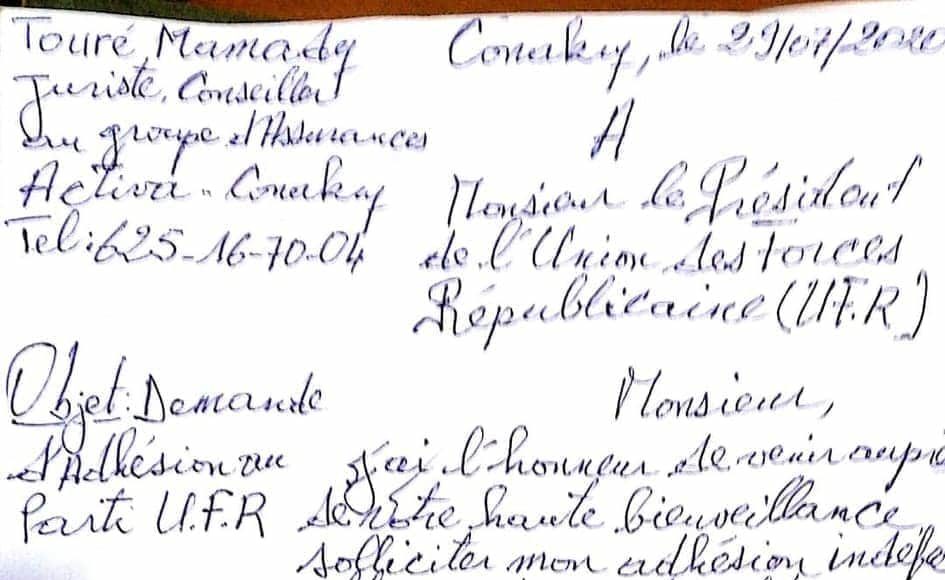 Touré Mamady
Juriste, Conseiller
au groupe d'Assurances
Activa - Conakry
Tel: 625-16-70-04
Conakry, le 29/07/2020
A
Monsieur le Président
de l'Union des forces
Républicaine (U.F.R)
Objet: Demande
d'Adhésion au
Parti U.F.R
Monsieur,
j'ai l'honneur de venir
de votre haute bienveillance
solliciter mon adhésion